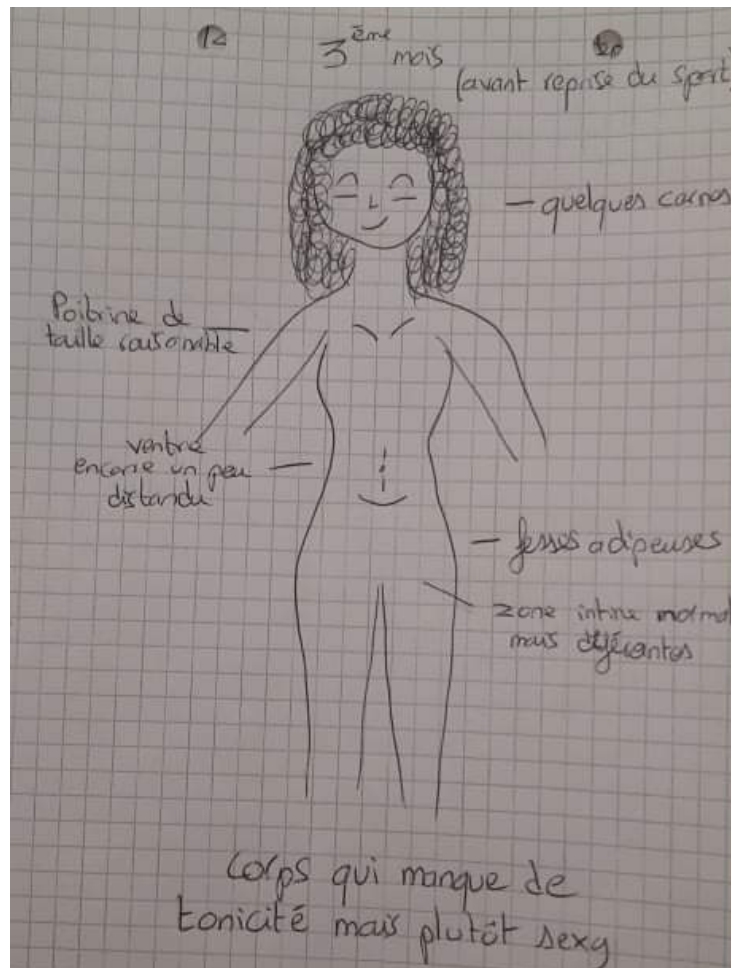 12
3ème mois
(avant reprise du sport
— quelques cernes
Poitrine de
taille raisonnable
ventre
encore un peu
distandu
— fesses adipeuses
zone intime normal
mais
corps qui manque de
tonicité mais plutôt sexy